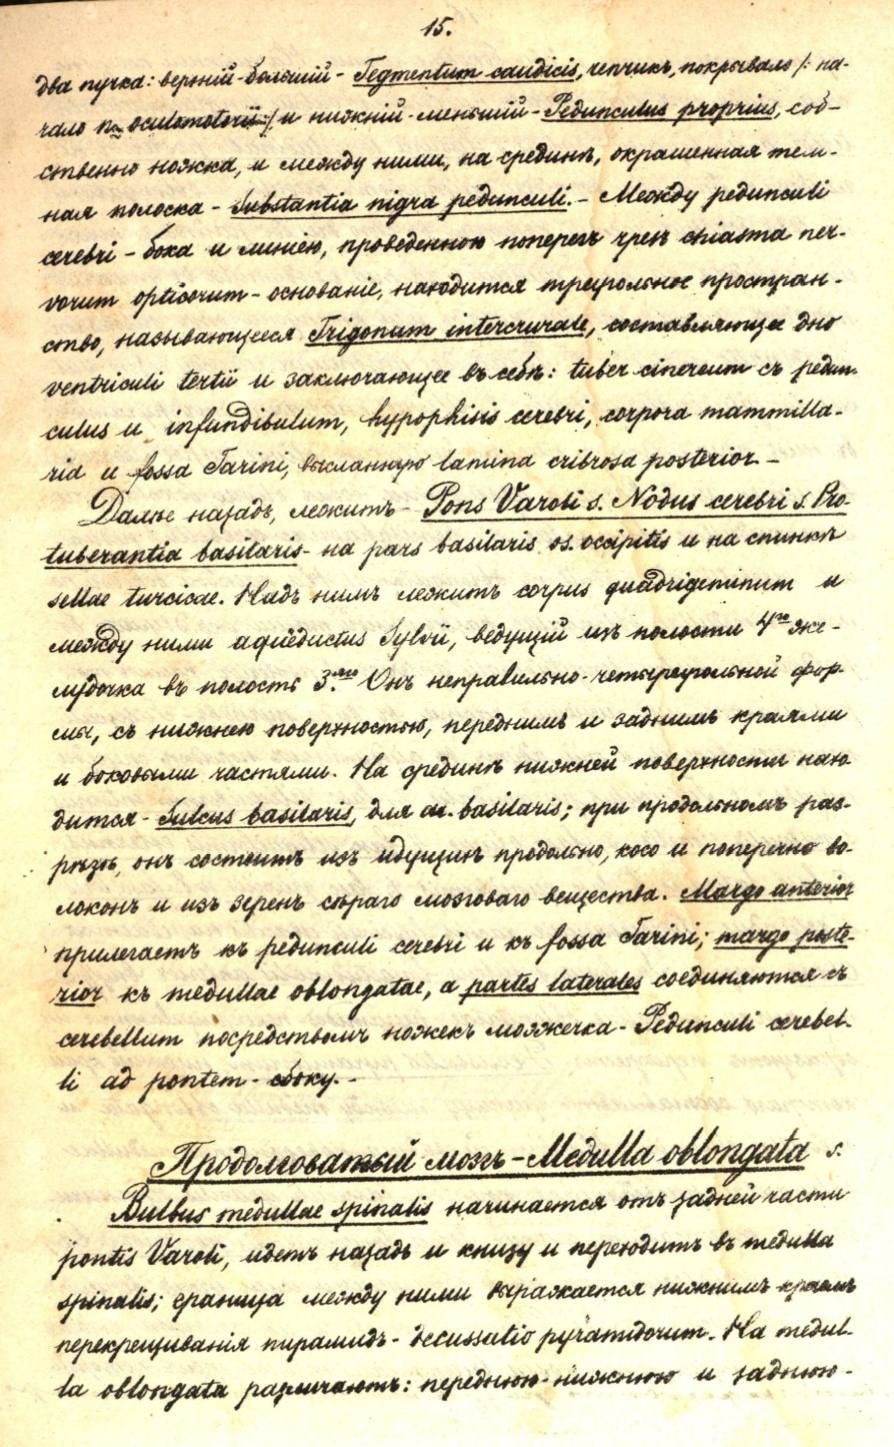 15.
два пучка: верхній-большій - Tegmentum caudicis, чепчикъ, покрывало /: на-
чало n. oculomotorii :/ и нижній-меньшій - Pedunculus proprius, соб-
ственно ножка, и между ними, на срединѣ, окрашенная тем-
ная полоска - Substantia nigra pedunculi. - Между pedunculi
cerebri - бока и линіею, проведенною поперегъ чрезъ chiasma ner-
vorum opticorum - основаніе, находится треугольное простран-
ство, называющееся Trigonum intercrurale, составляющее дно
ventriculi tertii и заключающее въ себѣ: tuber cinereum съ pedun-
culus и infundibulum, hypophisis cerebri, corpora mammilla-
ria и fossa Tarini, высланную lamina cribrosa posterior. -
Далѣе назадъ, лежитъ - Pons Varoli s. Nodus cerebri s. Pro-
tuberantia basilaris - на pars basilaris os. occipitis и на спинкѣ
sellae turcicae. Надъ нимъ лежитъ corpus quadrigeminum и
между ними aquaeductus Sylvii, ведущій изъ полости 4го же-
лудочка въ полость 3го. Онъ неправильно-четыреугольной фор-
мы, съ нижнею поверхностью, переднимъ и заднимъ краями
и боковыми частями. На срединѣ нижней поверхности нахо-
дится - Sulcus basilaris, для a. basilaris; при продольномъ раз-
рѣзѣ, онъ состоитъ изъ идущихъ продольно, косо и поперечно во-
локонъ и изъ зеренъ сѣраго мозговаго вещества. Margo anterior
прилегаетъ къ pedunculi cerebri и къ fossa Tarini; margo poste-
rior къ medullae oblongatae, а partes laterales соединяются съ
cerebellum посредствомъ ножекъ мозжечка - Pedunculi cerebel-
li ad pontem - сбоку. -
Продолговатый мозгъ - Medulla oblongata s.
Bulbus medullae spinalis начинается отъ задней части
pontis Varoli, идетъ назадъ и книзу и переходитъ въ medulla
spinalis; граница между ними выражается нижнимъ краемъ
перекрещиванія пирамидъ - decussatio pyramidorum. На medul-
la oblongata различаютъ: переднюю-нижнюю и заднюю-